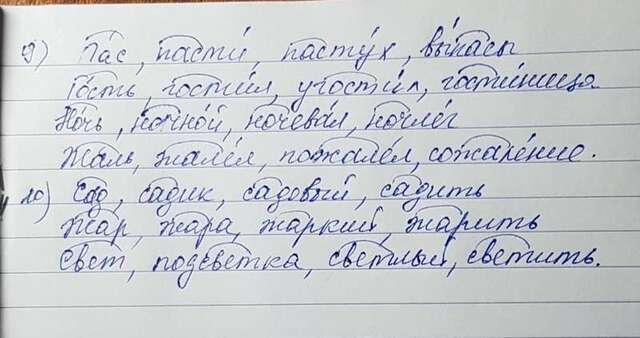 9) Пас, пасти́, пасту́х, вы́пасы
Гость, гости́л, угости́л, гости́ница
Но́чь, ночно́й, ночева́л, ночле́г
Жаль, жале́л, пожале́л, сожале́ние.
10) Сад, садик, садовый, садить
Жар, жара, жаркий, жарить
Свет, подсветка, светлый, светить.